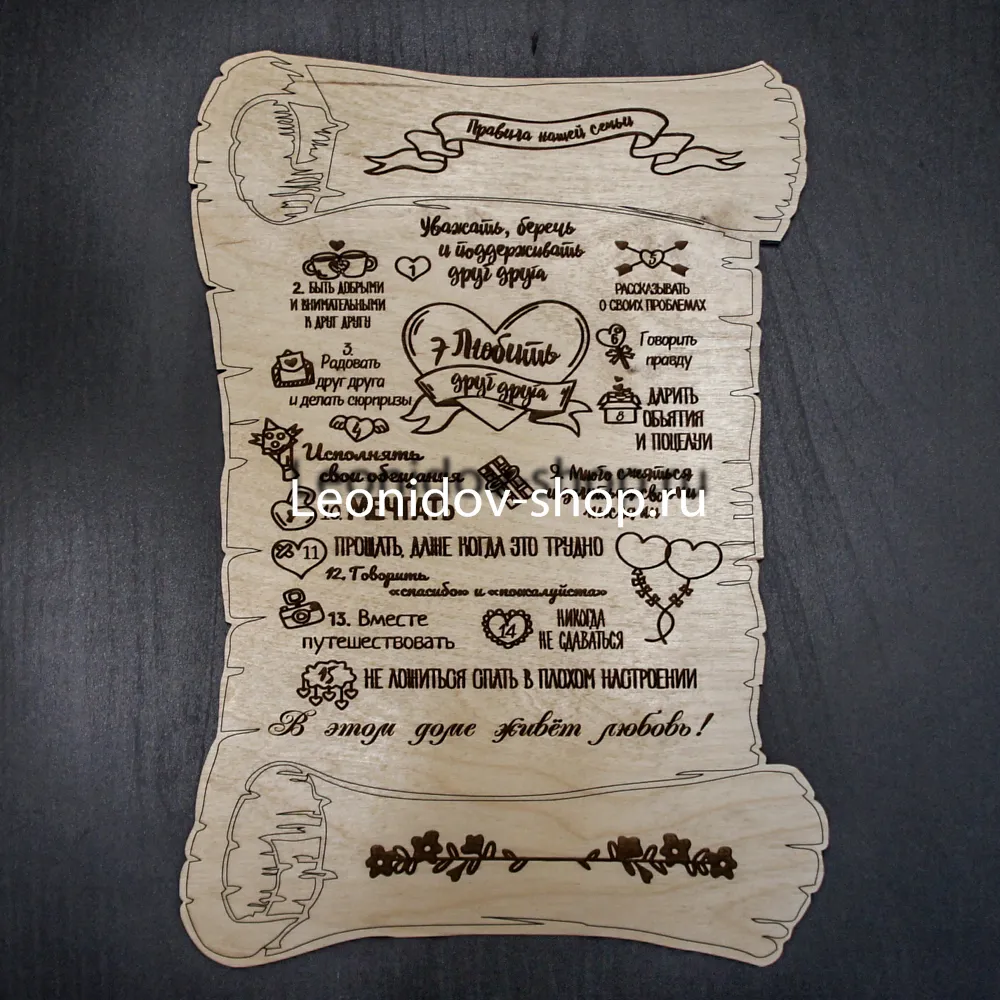 Правила нашей семьи
Уважать, беречь
и поддерживать
1 друг друга
2. БЫТЬ ДОБРЫМИ
И ВНИМАТЕЛЬНЫМИ
К ДРУГ ДРУГУ
5
РАССКАЗЫВАТЬ
О СВОИХ ПРОБЛЕМАХ
3.
Радовать
друг друга
и делать сюрпризы
7 Любить
друг друга
6 Говорить
правду
4
Исполнять
свои обещания
8 ДАРИТЬ
ОБЪЯТИЯ
И ПОЦЕЛУИ
Leonidov-shop.ru
9. Много смеяться
Leonidov-shop.ru
10. МЕЧТАТЬ
11 ПРОЩАТЬ, ДАЖЕ КОГДА ЭТО ТРУДНО
12. Говорить
«спасибо» и «пожалуйста»
13. Вместе
путешествовать
14 НИКОГДА
НЕ СДАВАТЬСЯ
15 НЕ ЛОЖИТЬСЯ СПАТЬ В ПЛОХОМ НАСТРОЕНИИ
В этом доме живёт любовь!